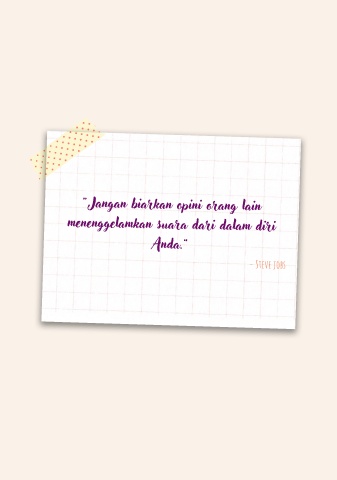 "Jangan biarkan opini orang lain
menenggelamkan suara dari dalam diri
Anda."
- Steve Jobs